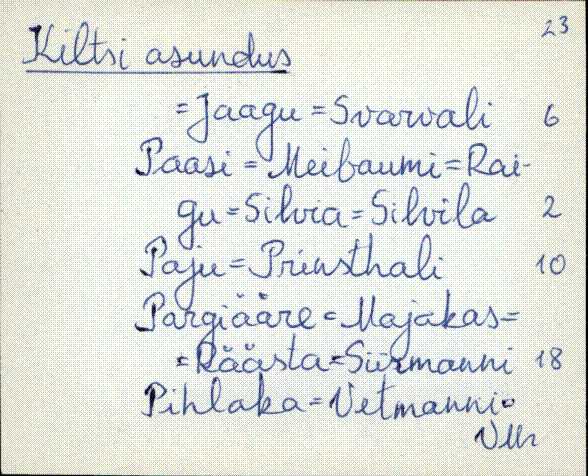 23
Kiltsi asundus
=Jaagu=Svarvali 6
Paasi=Meibaumi=Rai-
gu=Silvia=Silvila 2
Paju=Prinsthali 10
Pargiääre=Majakas=
=Räästa=Siirmanni 18
Pihlaka=Vetmanni=